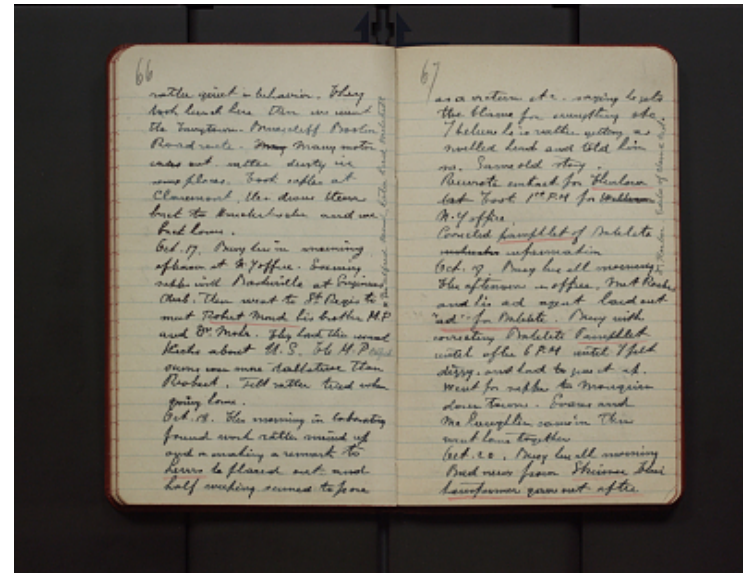 66
rather quiet in behavior. They
took lunch here then we went
the Tarrytown. Briarcliff Boston
Road route. Many motor
cars out rather dusty in
some places. Took supper at
Claremont, then drove them
back to Knickerbocker and we
back home.
Oct. 17. Busy here in morning
afternoon at N.Y office. Evening
supper with Baskerville at Engineers
Club. Then went to St Regis to
meet Robert Mond his brother M.P
and Dr. Mohr. They had the usual
Kicks about U.S. The M.P
seems even more talkative than
Robert. Felt rather tired when
going home.
Oct. 18. This morning in laboratory
found work rather mixed up
and on making a remark to
he flared out and
half weeping seemed to pose
67
as a victim etc. saying he gets
the blame for everything etc.
I believe he is rather getting a
swelled head and told him
so. Same old story.
Rewrote contract for
Took 1st P.M for
N.Y office.
Corrected pamphlet of Bakelite
information
Oct. 19. Busy here all morning.
The afternoon in office. Met
and his ad agent laid out
"ad" for Bakelite. Busy with
correcting Bakelite Pamphlet
until after 6 P.M until I felt
dizzy and had to give it up.
Went for supper to
down town. Evans and
McLaughlin came in. Then
went home together
Oct. 20. Busy here all morning
Bad news from
transformer gave out after